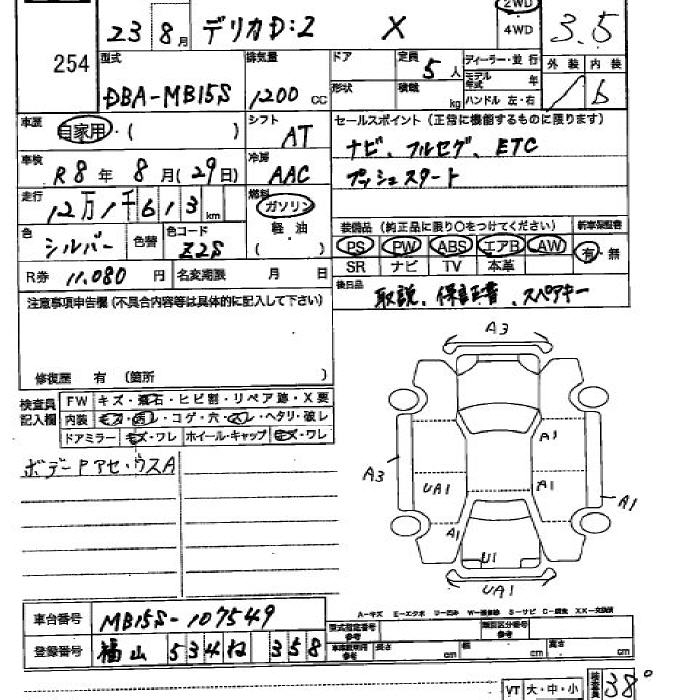 254
23 8月 デリカD:2 X
2WD
4WD
3.5
型式 DBA-MB15S
排気量 1200 CC
ドア
形状
定員 5人
積載 kg
ディーラー・並行
モデル年式 年
ハンドル 左・右
外装 内装
b
車歴 自家用・( )
シフト AT
車検 R8年 8月(29日)
冷房 AAC
走行 12万1千613km
燃料 ガソリン
軽油
( )
色 シルバー 色替 色コード Z2S
R券 11,080 円 名変期限 月 日
セールスポイント(正常に機能するものに限ります)
ナビ、フルセグ、ETC
プッシュスタート
装備品(純正品に限り○をつけてください) 新車保証書
PS PW ABS エアB AW 有・無
SR ナビ TV 本革
後日品 取説、保証書、スペアキー
注意事項申告欄(不具合内容等は具体的に記入して下さい)
修復歴 有(箇所 )
検査員記入欄
FW キズ・飛石・ヒビ割・リペア跡・X要
内装 キズ・汚レ・コゲ・穴・スレ・ヘタリ・破レ
ドアミラー キズ・ワレ ホイール・キャップ キズ・ワレ
ボデーPアセ・ウスA
A3
A1
A3
UA1
A1
A1
A1
U1
UA1
A-キズ E-エクボ
車台番号 MB15S-107549
登録番号 福山 534 ね 358
型式指定番号 参考
類別区分番号 参考
長さ cm 幅 cm 高さ cm
VT 大・中・小
検査員 38°